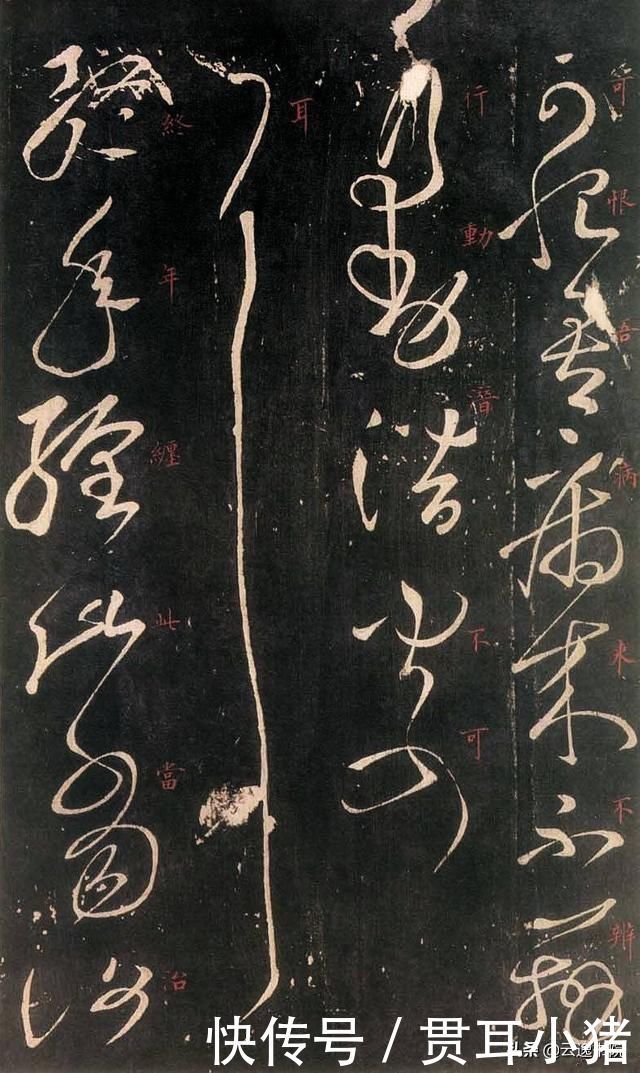 可恨吾病来不辨
行動潛不可
耳
終年纏此當治
快传号 / 贯耳小猪
头条 @云逸书院